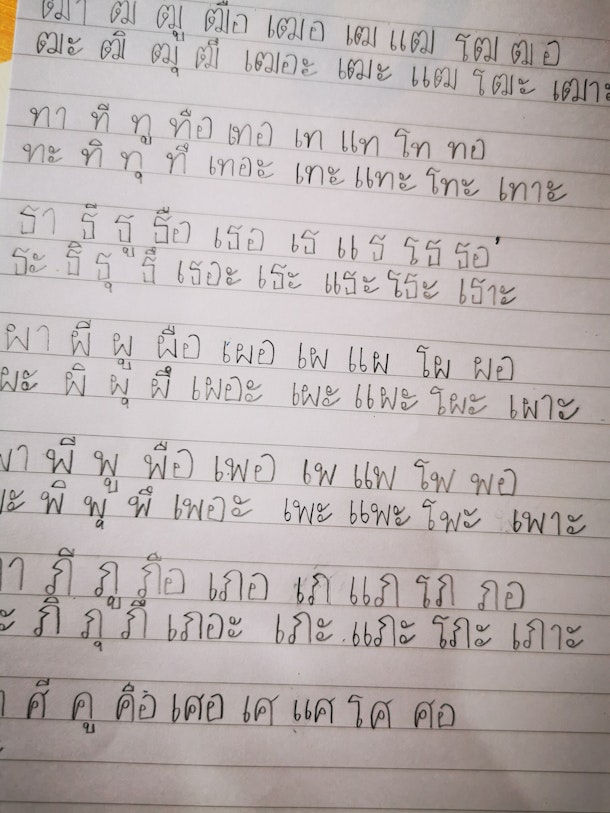 ฒา ฒี ฒู ฒือ เฒอ เฒ แฒ โฒ ฒอ
ฒะ ฒิ ฒุ ฒึ เฒอะ เฒะ แฒ โฒะ เฒาะ
ทา ที ทู ทือ เทอ เท แท โท ทอ
ทะ ทิ ทุ ทึ เทอะ เทะ แทะ โทะ เทาะ
ธา ธี ธู ธือ เธอ เธ แธ โธ ธอ
ธะ ธิ ธุ ธึ เธอะ เธะ แธะ โธะ เธาะ
ผา ผี ผู ผือ เผอ เผ แผ โผ ผอ
ผะ ผิ ผุ ผึ เผอะ เผะ แผะ โผะ เผาะ
พา พี พู พือ เพอ เพ แพ โพ พอ
พะ พิ พุ พึ เพอะ เพะ แพะ โพะ เพาะ
ภี ภู ภือ เภอ เภ แภ โภ ภอ
ภิ ภุ ภึ เภอะ เภะ แภะ โภะ เภาะ
ศี ศู ศือ เศอ เศ แศ โศ ศอ